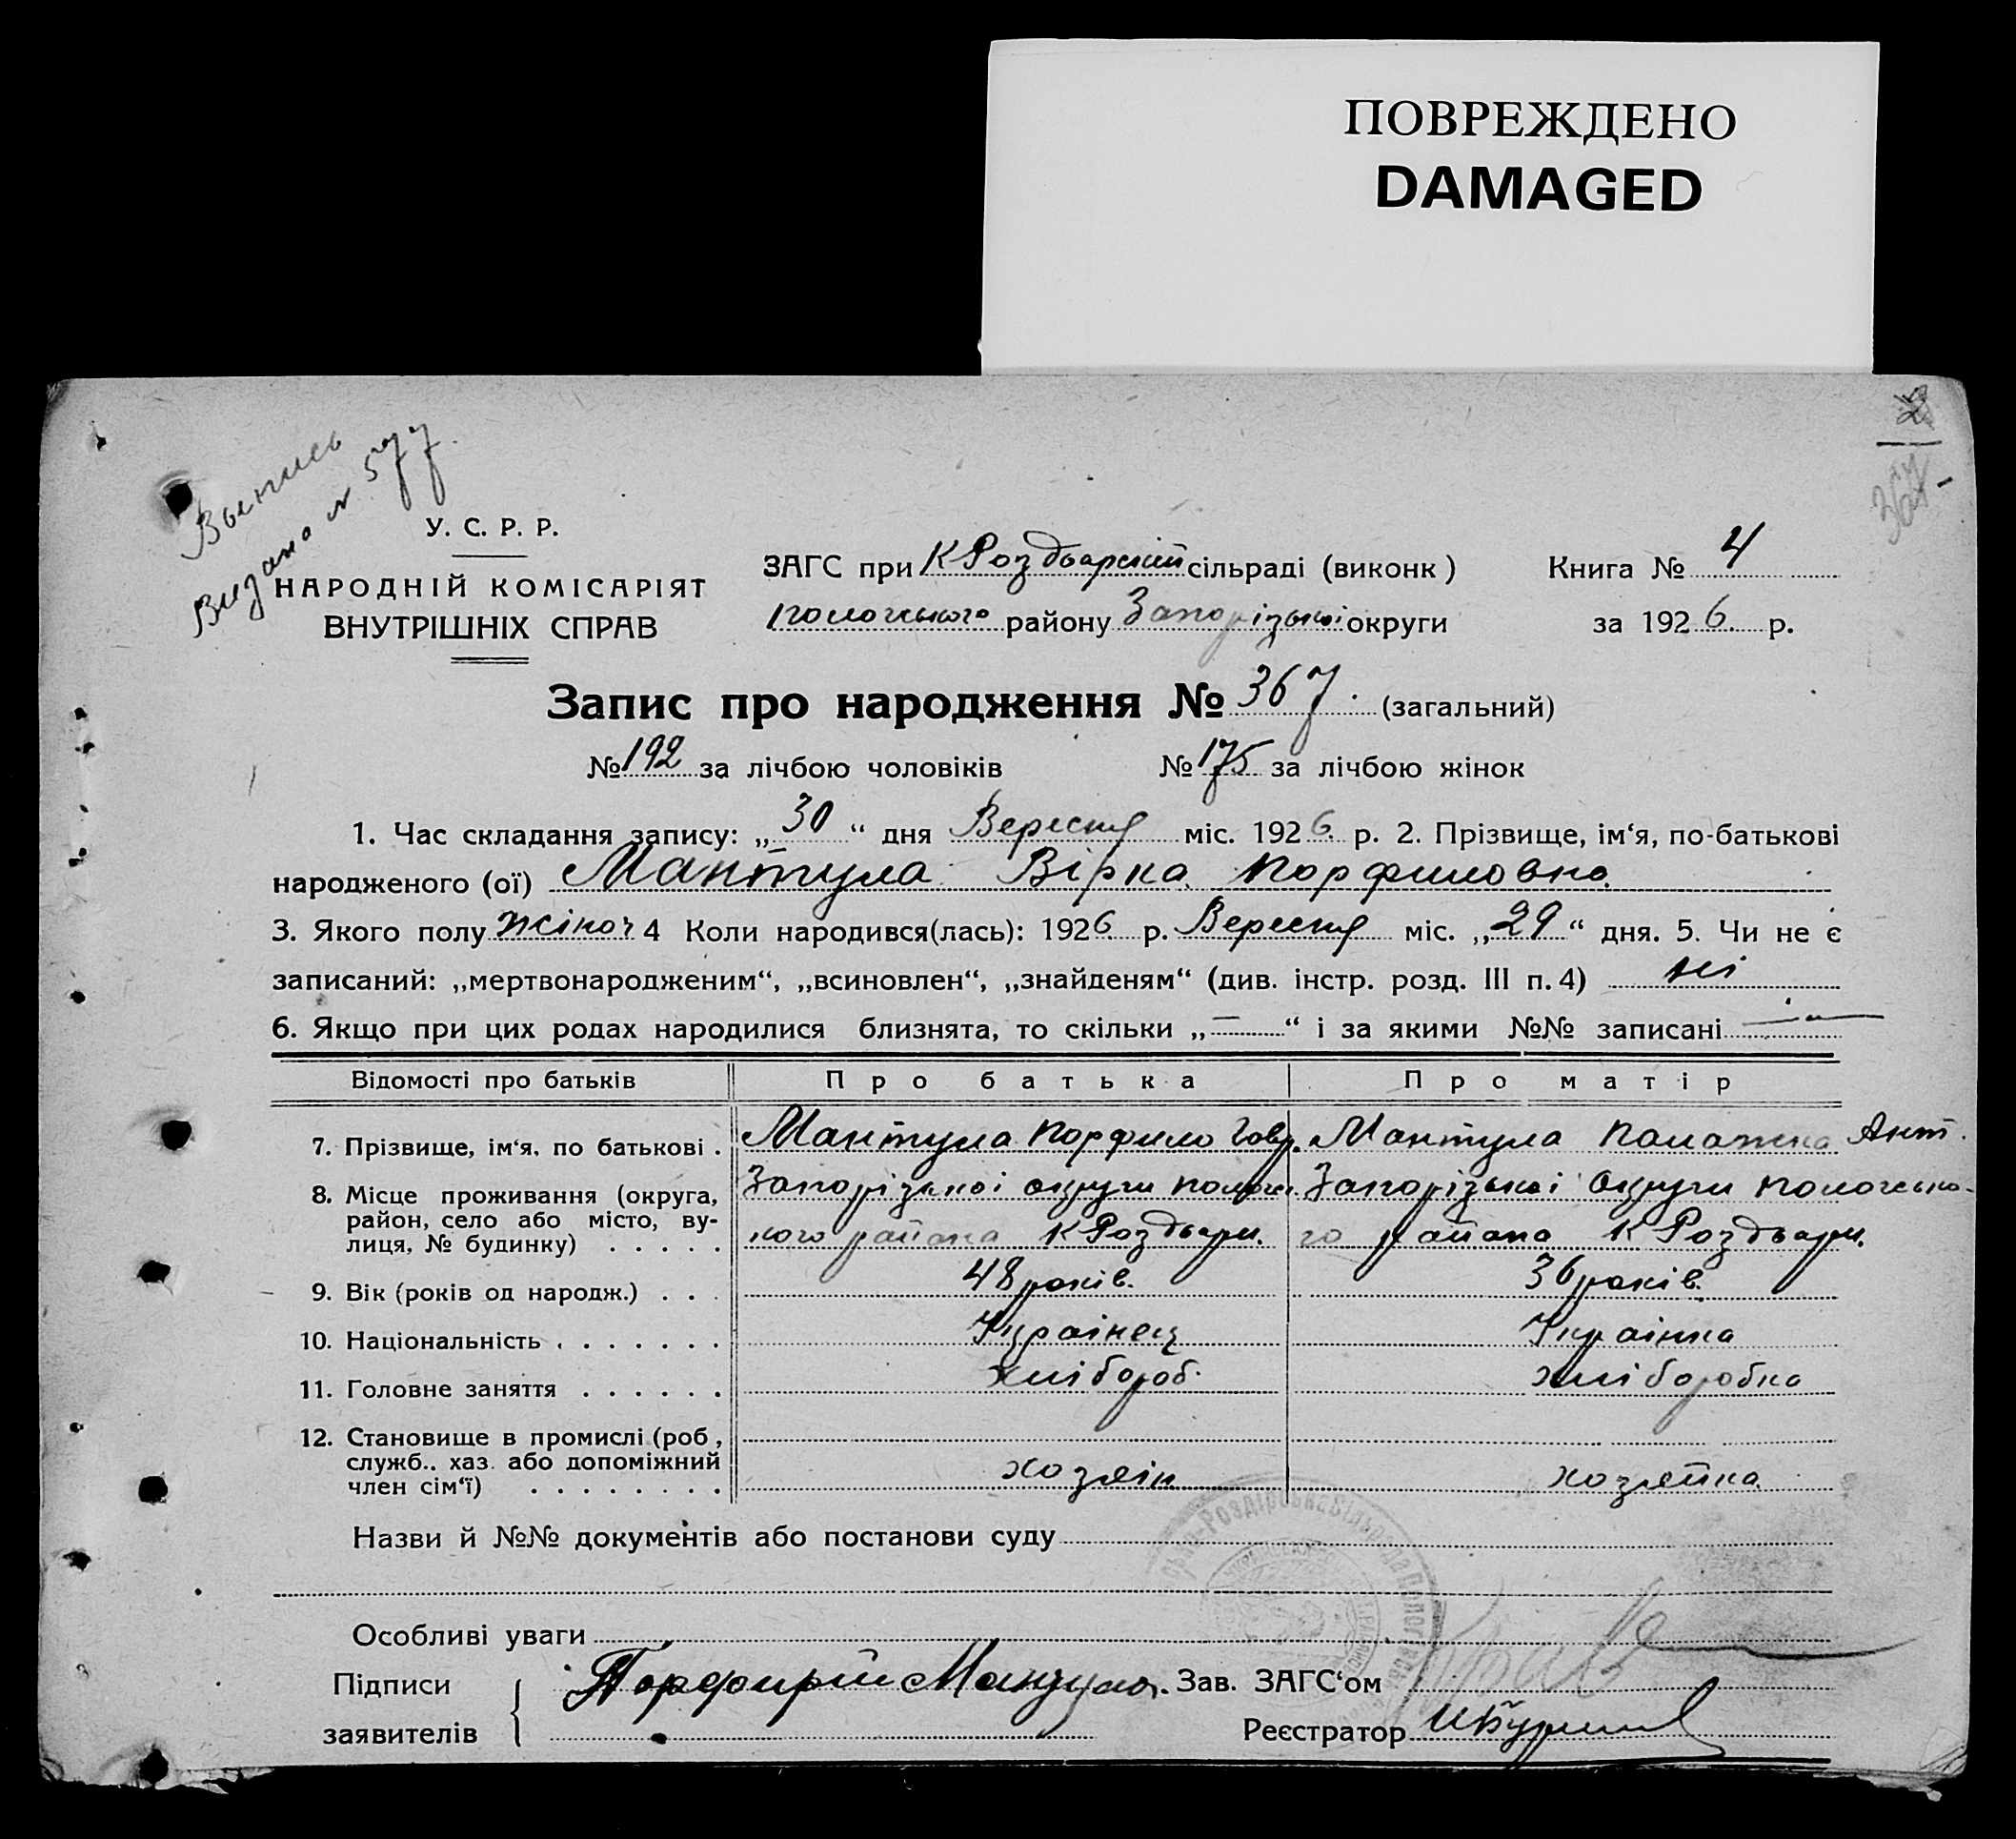 ПОВРЕЖДЕНО
DAMAGED
2
367
Выпись
Видано № 577
У. С. Р. Р.
НАРОДНІЙ КОМІСАРІЯТ
ВНУТРІШНІХ СПРАВ
ЗАГС при К Роздварській сільраді (виконк)
пологського району Запорізької округи
Книга № 4
за 1926 р.
Запис про народження № 367. (загальний)
№ 192 за лічбою чоловіків № 175 за лічбою жінок
1. Час складання запису: „30“ дня Вересня міс. 1926 р. 2. Прізвище, ім‘я, по-батькові
народженого (ої) Мантула Вірка Порфиловна
3. Якого полу жіноч 4 Коли народився(лась): 1926 р. Вересня міс. „29“ дня. 5. Чи не є
записаний: „мертвонародженим“, „всиновлен“, „знайденям“ (див. інстр. розд. III п. 4) ні
6. Якщо при цих родах народилися близнята, то скільки „—“ і за якими №№ записані —
Відомості про батьків Про батька Про матір
7. Прізвище, ім‘я, по батькові . Мантула Порфило Гавр. Мантула Палажка Ант.
8. Місце проживання (округа, район, село або місто, вулиця, № будинку) . . . . .
Запорізької округи пологс Запорізької округи пологсько-
кого района К Роздвари. го района К Роздвари.
9. Вік (років од народж.) . . . 48 років. 36 років.
10. Національність . . . . . . . Українец Українка
11. Головне заняття . . . . . . хлібороб. хліборобка
12. Становище в промислі (роб, служб.. хаз. або допоміжний член сім‘ї) . . . . . . . . хозяін хозяйка.
Назви й №№ документів або постанови суду
Особливі уваги
Підписи
заявителів
Порфирій Мантула.
Зав. ЗАГС‘ом
Реєстратор